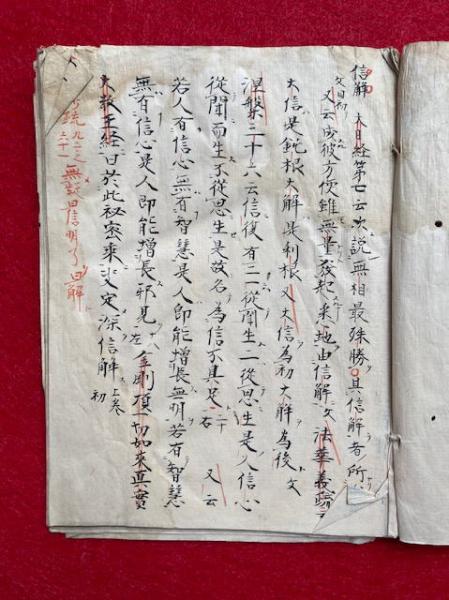 信解 大日経第七云次説無相最殊勝其信解者所
又云成彼方便雖無量發起悉地由信解文 法華義疏云
大信是鈍根大解是利根 又大信為初大解為後文
涅槃三十六云信復有二一從聞生二從思生是人信心
從聞而生不從思生是故名為信不具足 又云
若人有信心無有智慧是人即能增長無明若有智慧
無有信心是人即能增長邪見 金剛頂一切如來真實
大教王經曰於此秘密乘決定深信解 上卷初